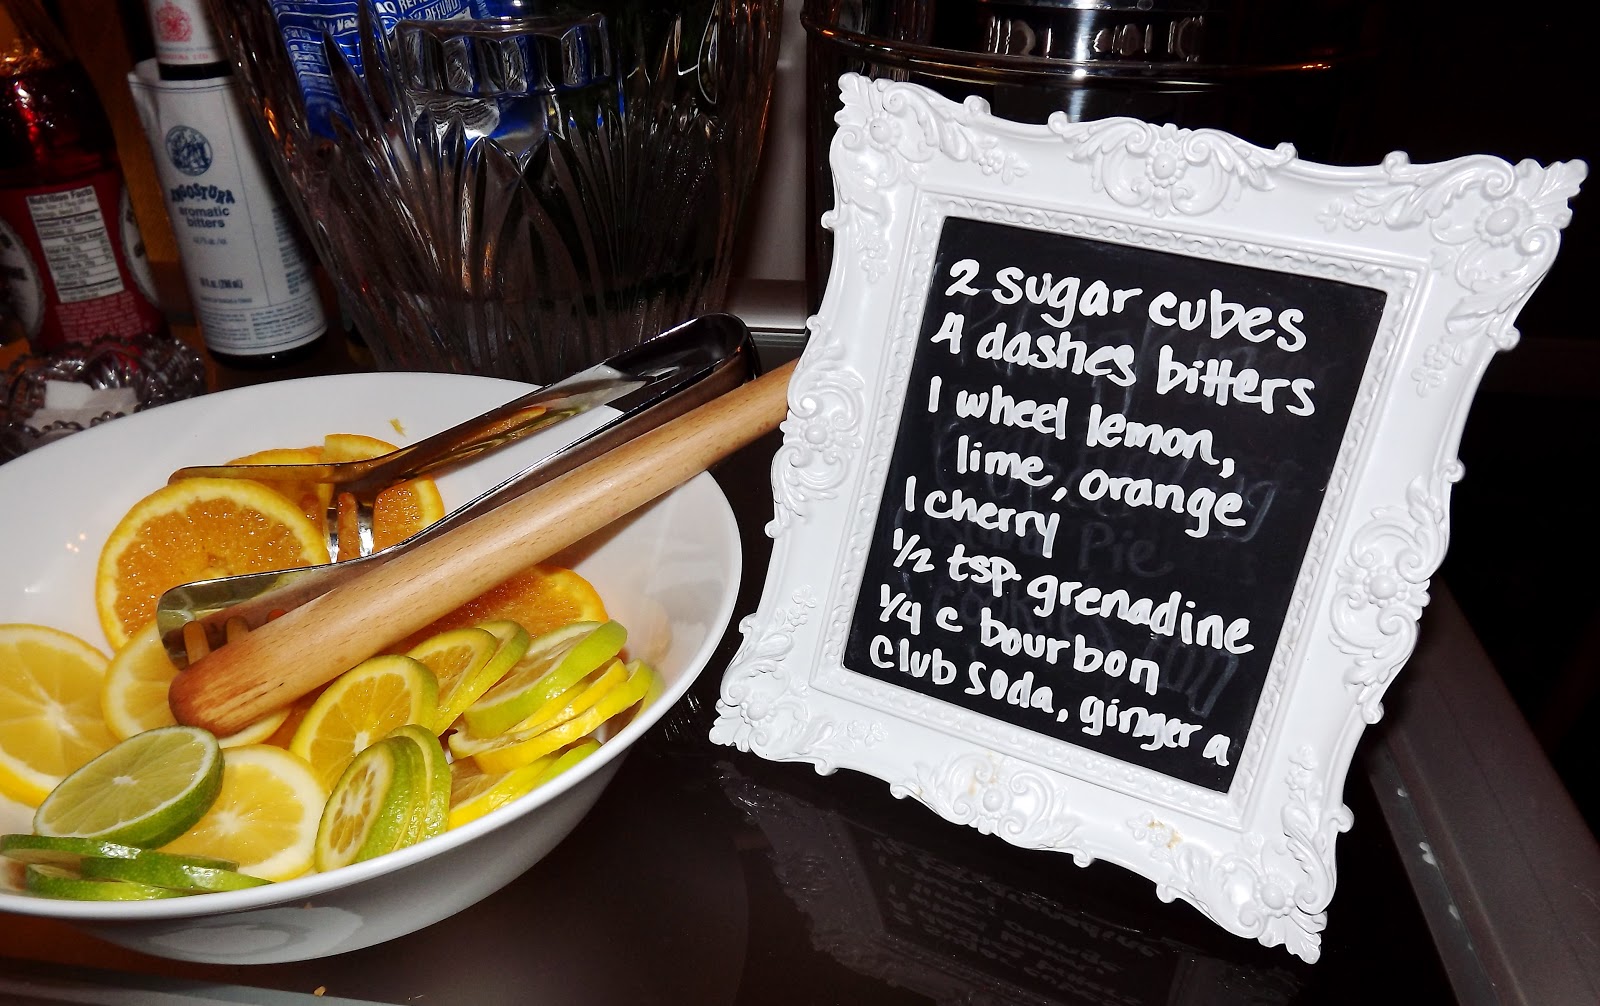 REFUND
ANGOSTURA
aromatic
bitters
Nutrition Facts
2 sugar cubes
4 dashes bitters
1 wheel lemon,
lime, orange
1 cherry
1/2 tsp grenadine
1/4 c bourbon
Club soda, ginger a
Pie
cookies